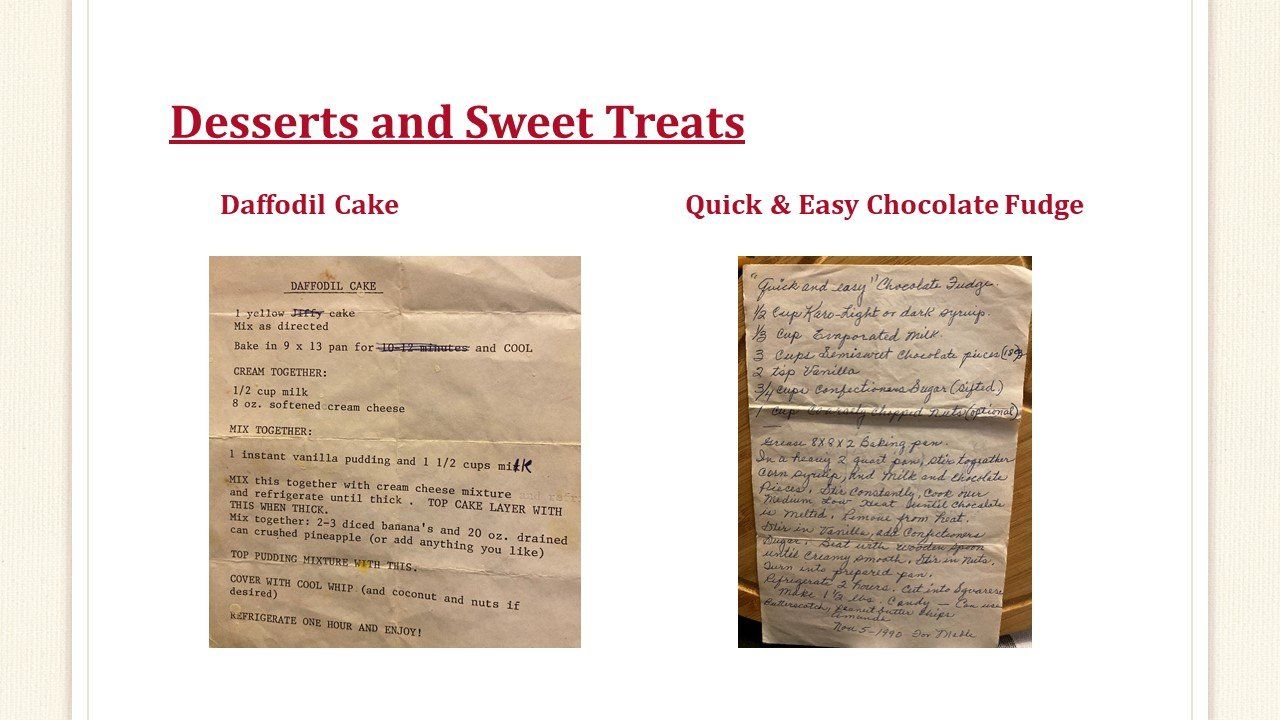 Desserts and Sweet Treats
Daffodil Cake
DAFFODIL CAKE
1 yellow Jiffy cake
Mix as directed
Bake in 9 x 13 pan for 10-12 minutes and COOL
CREAM TOGETHER:
1/2 cup milk
8 oz. softened cream cheese
MIX TOGETHER:
1 instant vanilla pudding and 1 1/2 cups milk
MIX this together with cream cheese mixture and refr
and refrigerate until thick . TOP CAKE LAYER WITH
THIS WHEN THICK.
Mix together: 2-3 diced banana's and 20 oz. drained
can crushed pineapple (or add anything you like)
TOP PUDDING MIXTURE WITH THIS.
COVER WITH COOL WHIP (and coconut and nuts if
desired)
REFRIGERATE ONE HOUR AND ENJOY!
Quick & Easy Chocolate Fudge
"Quick and easy" Chocolate Fudge.
1/2 Cup Karo-Light or dark syrup.
1/3 Cup Evaporated Milk.
3 Cups Semisweet Chocolate pieces
2 tsp Vanilla
3/4 cups Confectioners Sugar (sifted)
1 Cup Coarsely Chopped nuts (optional)
Grease 8X8X2 Baking pan.
In a heavy 2 quart pan, stir togeather
Corn syrup, and Milk and Chocolate
Pieces. Stir Constantly, Cook over
Medium Low Heat until Chocolate
is Melted. Remove from heat.
Stir in Vanilla, add Confectioners
Sugar. Beat with wooden spoon
until Creamy smooth. Stir in Nuts.
Turn into prepared pan.
Refrigerate 2 hours. Cut into Squares
Make 1 1/2 lbs. Candy — Can use
Butterscotch, peanut butter chips
almonds
Nov 5-1990